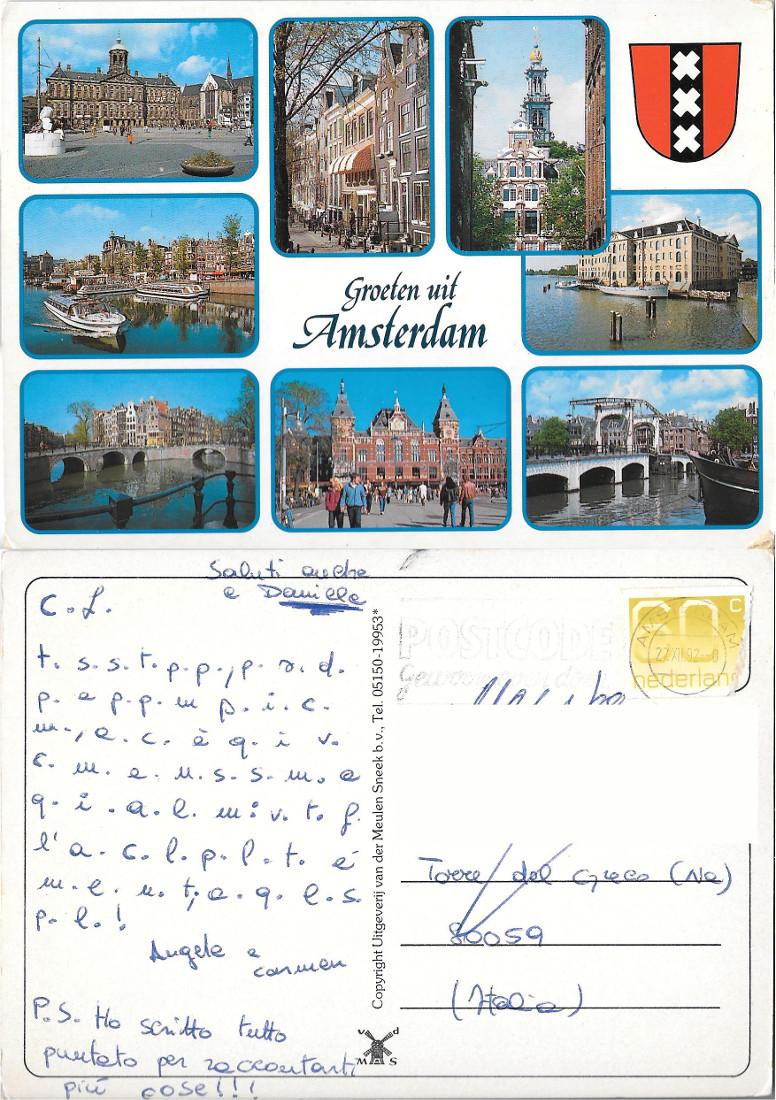 Groeten uit
Amsterdam
Saluti anche
a Daniele
C. L.
t. s. s. t. p. p., p. a. d.
p. e p. p. m p. i. c.
m., e. c. è q. i v.
c. m. e. n. s. s. m. e
q. i. a. l. m. v. t. f.
l'a. c. l. p. l. t. e'
m. e. n. t., e. q. e. s.
p. l. !
Angela e
Carmen
P.S. Ho scritto tutto
puntato per raccontarti
più cose!!!
Copyright Uitgeverij van der Meulen Sneek b.v., Tel. 05150-19953*
v d
M S
POSTCODE
27.XII.92
60 c
nederland
Torre del Greco (Na)
80059
(Italia)